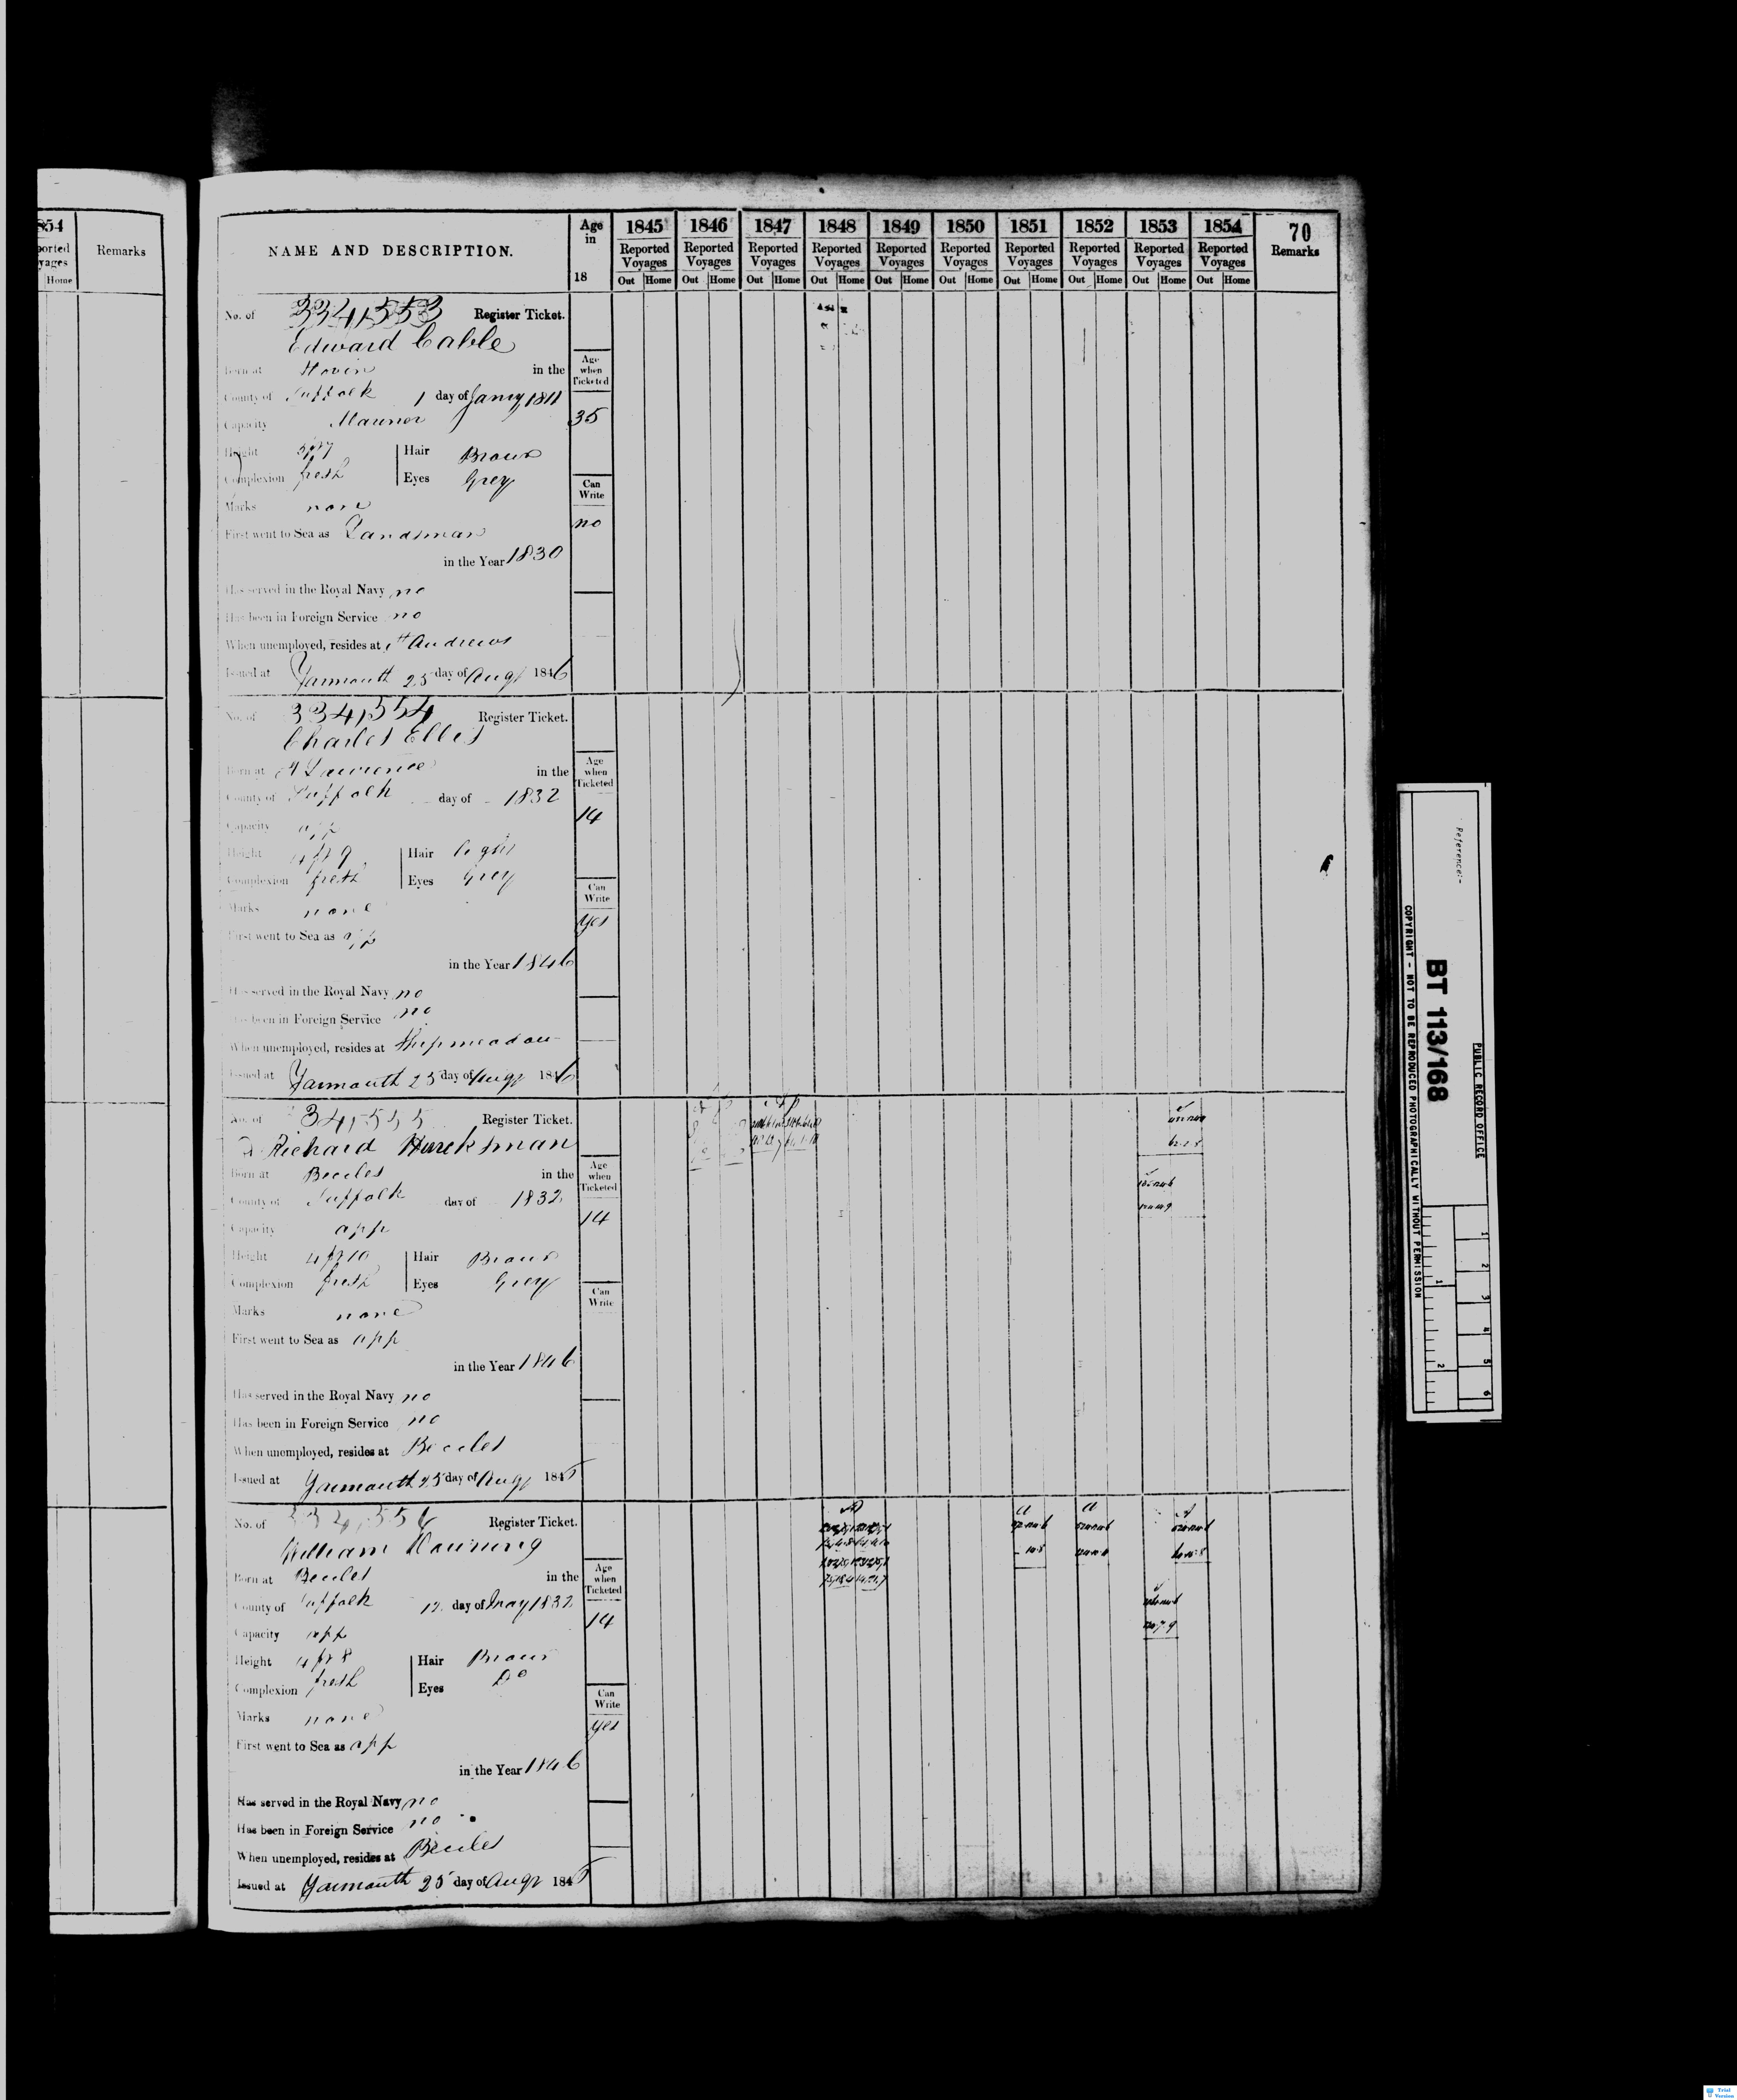 854
ported
yages
Home
Remarks
NAME AND DESCRIPTION.
Age in 18
1845 Reported Voyages Out Home
1846 Reported Voyages Out Home
1847 Reported Voyages Out Home
1848 Reported Voyages Out Home
1849 Reported Voyages Out Home
1850 Reported Voyages Out Home
1851 Reported Voyages Out Home
1852 Reported Voyages Out Home
1853 Reported Voyages Out Home
1854 Reported Voyages Out Home
70
Remarks
No. of 334,553 Register Ticket.
Edward Cable
Born at in the
County of Suffolk 1 day of Jany 1811
Capacity Mariner
Height 5ft7 Hair Brown
Complexion fresh Eyes Grey
Marks none
First went to Sea as Landsman
in the Year 1830
Has served in the Royal Navy no
Has been in Foreign Service no
When unemployed, resides at St Andrews
Issued at Yarmouth 25 day of Augt 1846
Age when Ticketed
35
Can Write
no
No. of 334,554 Register Ticket.
Charles Ellis
Born at St Lawrence in the
County of Suffolk day of 1832
Capacity app
Height 4ft9 Hair light
Complexion fresh Eyes Grey
Marks none
First went to Sea as app
in the Year 1846
Has served in the Royal Navy no
Has been in Foreign Service no
When unemployed, resides at Shipmeadow
Issued at Yarmouth 25 day of Augt 1846
Age when Ticketed
14
Can Write
yes
No. of 334,555 Register Ticket.
Richard Hurcksman
Born at Beccles in the
County of Suffolk day of 1832
Capacity app
Height 4ft10 Hair Brown
Complexion fresh Eyes Grey
Marks none
First went to Sea as app
in the Year 1846
Has served in the Royal Navy no
Has been in Foreign Service no
When unemployed, resides at Beccles
Issued at Yarmouth 25 day of Augt 184
Age when Ticketed
14
Can Write
No. of 334,556 Register Ticket.
William
Born at Beccles in the
County of Suffolk 12 day of May 1832
Capacity app
Height 4ft8 Hair Brown
Complexion fresh Eyes Do
Marks none
First went to Sea as app
in the Year 1846
Has served in the Royal Navy no
Has been in Foreign Service no
When unemployed, resides at Beccles
Issued at Yarmouth 25 day of Augt 184
Age when Ticketed
14
Can Write
yes
PUBLIC RECORD OFFICE
Reference:-
BT 113/168
COPYRIGHT - NOT TO BE REPRODUCED PHOTOGRAPHICALLY WITHOUT PERMISSION
1 2 3 4 5 6
1 2
Trial Version